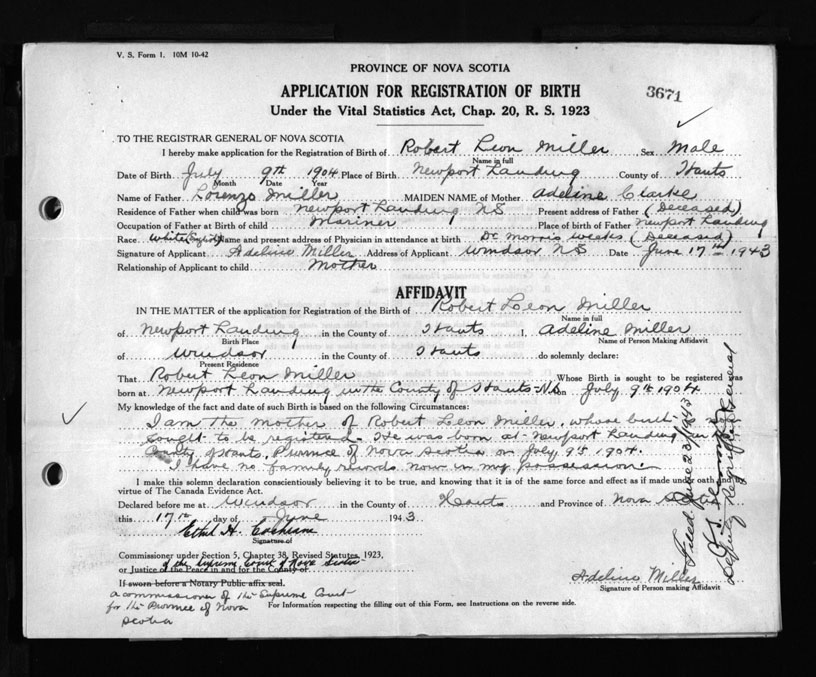 V. S. Form 1. 10M 10-42
PROVINCE OF NOVA SCOTIA
APPLICATION FOR REGISTRATION OF BIRTH
3671
Under the Vital Statistics Act, Chap. 20, R. S. 1923
TO THE REGISTRAR GENERAL OF NOVA SCOTIA
I hereby make application for the Registration of Birth of Robert Leon Miller Sex Male
Name in full
Date of Birth July 9th 1904 Place of Birth Newport Landing County of Hants
Month Date Year
Name of Father Lorenzo Miller MAIDEN NAME of Mother Adeline Clarke
Residence of Father when child was born Newport Landing NS Present address of Father (Deceased)
Occupation of Father at Birth of child Mariner Place of birth of Father Newport Landing
Race White (English) Name and present address of Physician in attendance at birth Dr Morris Weeks (Deceased)
Signature of Applicant Adeline Miller Address of Applicant Windsor NS Date June 17th 1943
Relationship of Applicant to child Mother
AFFIDAVIT
IN THE MATTER of the application for Registration of the Birth of Robert Leon Miller
Name in full
of Newport Landing in the County of Hants I, Adeline Miller
Birth Place Name of Person Making Affidavit
of Windsor in the County of Hants do solemnly declare:
Present Residence
That Robert Leon Miller Whose Birth is sought to be registered was
born at Newport Landing in the County of Hants NS on July 9th 1904
My knowledge of the fact and date of such Birth is based on the following Circumstances:
I am the mother of Robert Leon Miller, whose birth is
sought to be registered. He was born at Newport Landing in the
County of Hants, Province of Nova Scotia on July 9th 1904.
I have no family records now in my possession.
I make this solemn declaration conscientiously believing it to be true, and knowing that it is of the same force and effect as if made under oath and
virtue of The Canada Evidence Act.
Declared before me at Windsor in the County of Hants and Province of Nova Scotia
this 17th day of June 1943
Ethel H. Cochran
Signature of
Commissioner under Section 5, Chapter 38, Revised Statutes, 1923,
of the Supreme Court of Nova Scotia
or Justice of the Peace in and for the County of
If sworn before a Notary Public affix seal.
a commissioner of the Supreme Court
for the Province of Nova
Scotia
For Information respecting the filling out of this Form, see Instructions on the reverse side.
Adeline Miller
Signature of Person making Affidavit
Filed June 23/1943
Deputy Registrar General